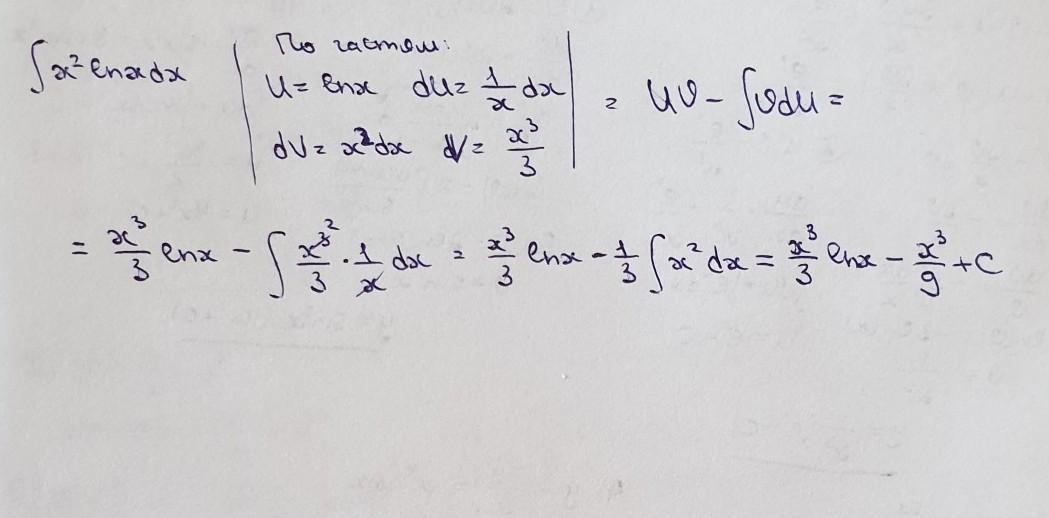 ∫x² lnx dx | По частям:
U = lnx  dU = 1/x dx | = UV - ∫Vdu =
dV = x²dx  V = x³/3
= x³/3 lnx - ∫ x³/3 · 1/x dx = x³/3 lnx - 1/3 ∫x²dx = x³/3 lnx - x³/9 + C